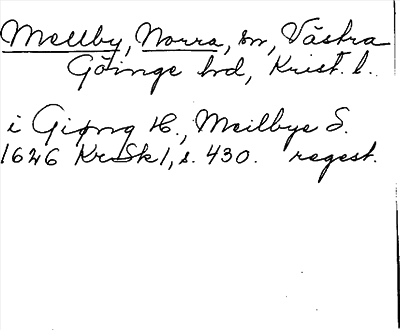 Mellby, Norra, sn, Västra
Göinge hd, Krist. l.
i Giøng H., Meilbye S.
1626 KrSk 1, s. 430. regest.